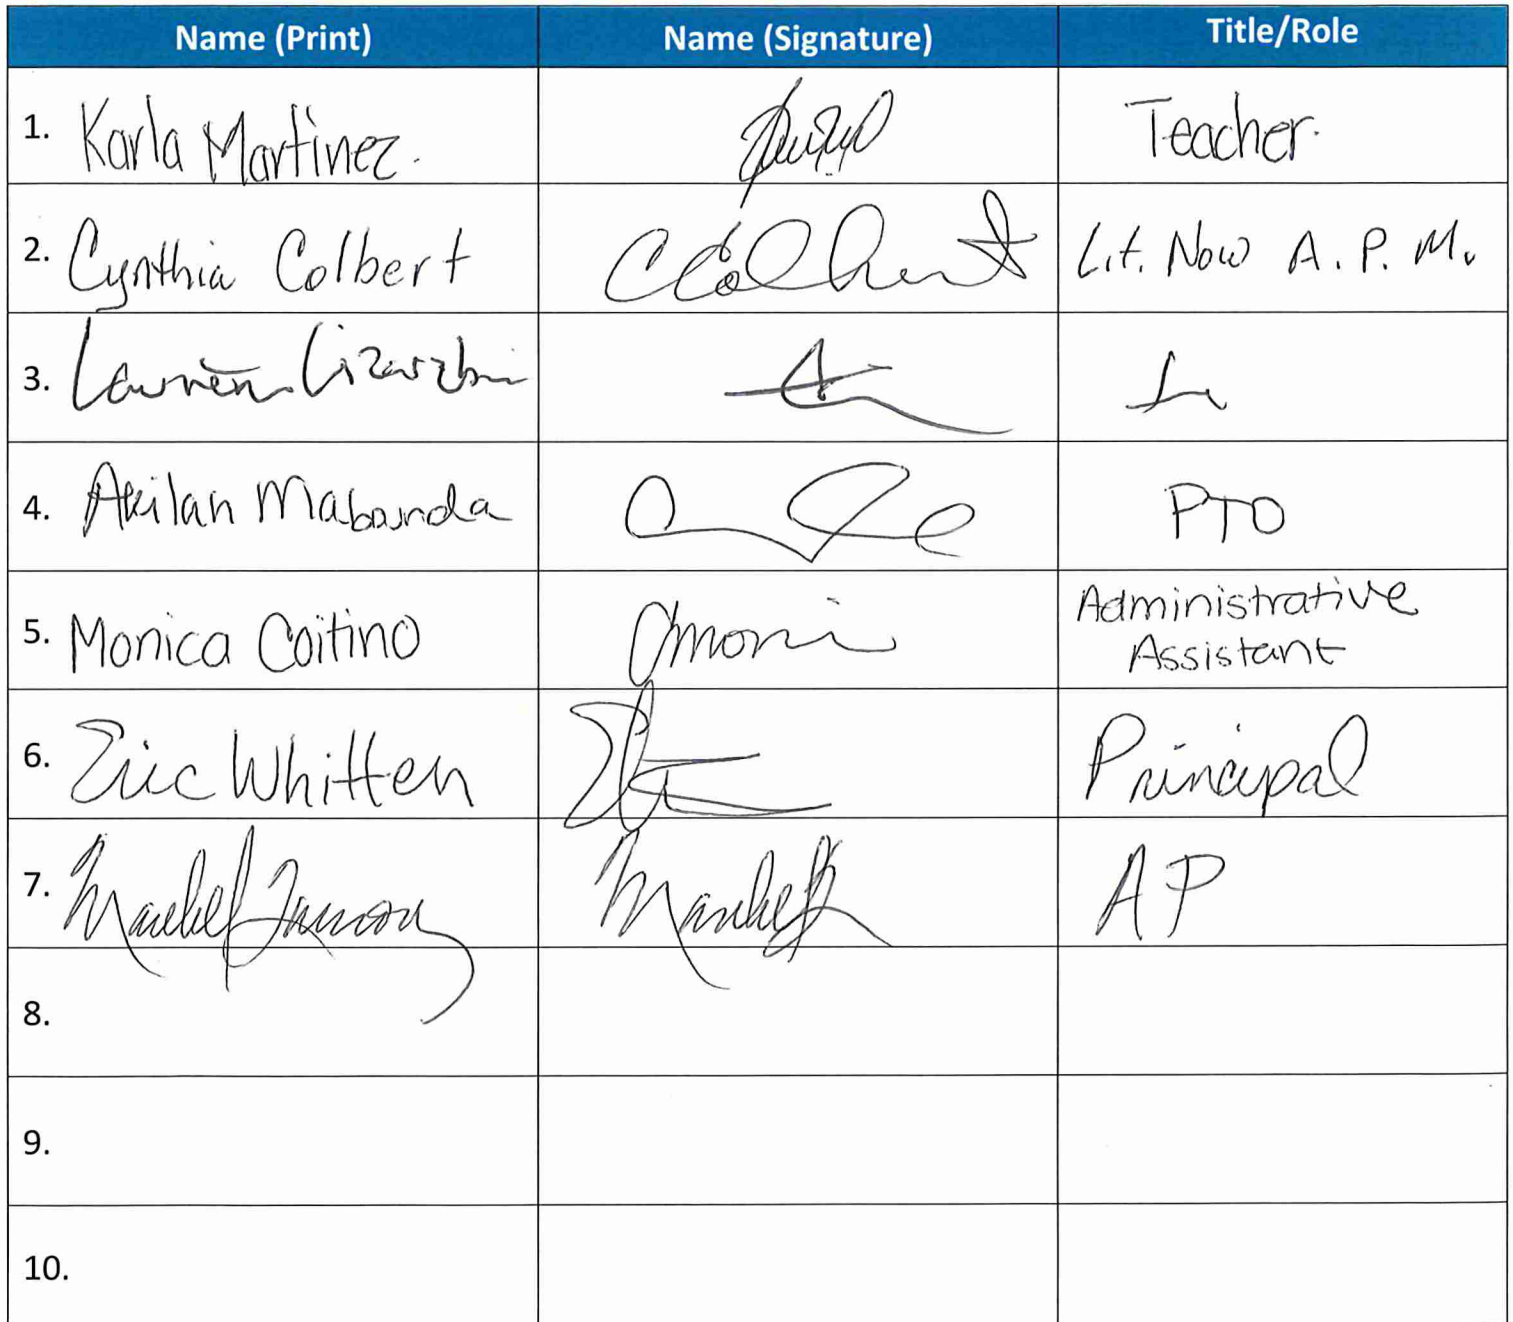 Name (Print) Name (Signature) Title/Role
1. Karla Martinez. Teacher.
2. Cynthia Colbert CColbert Lit. Now A.P.M.
3. Lauren
4. Mabounda PTO
5. Monica Coitino Administrative
Assistant
6. Eric Whitten Principal
7. Maribel AP
8.
9.
10.